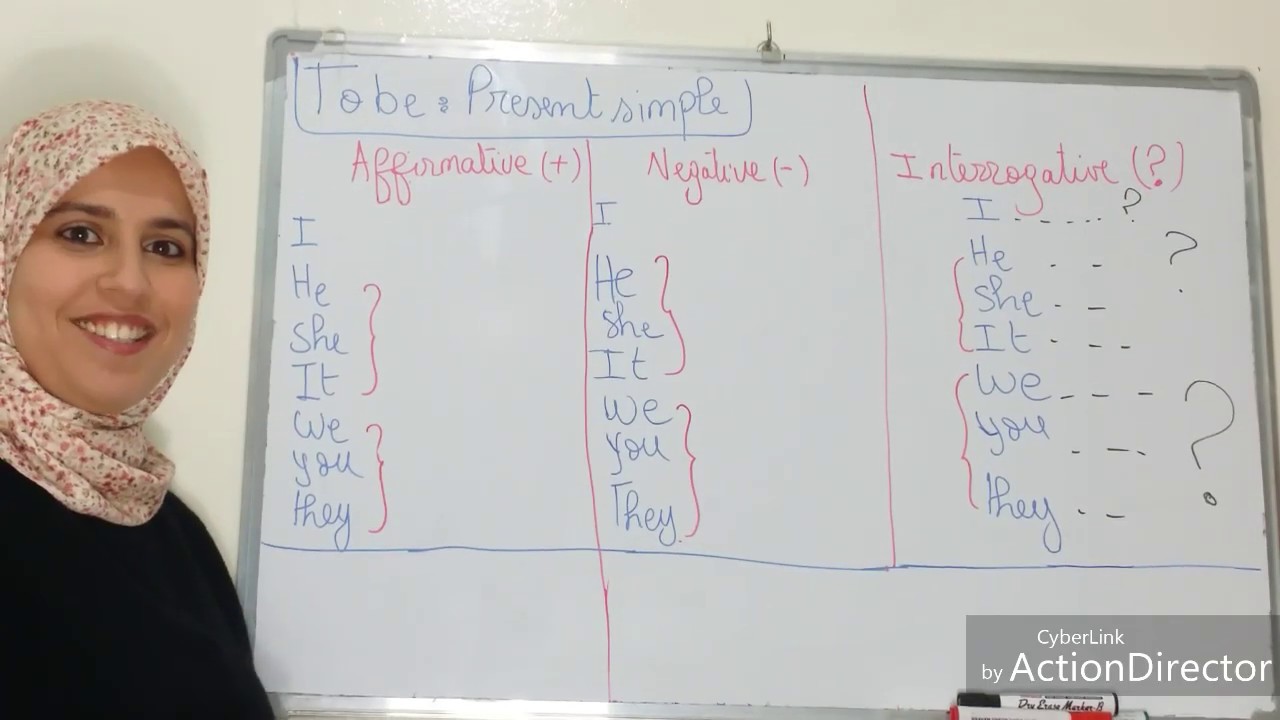 To be : Present simple
Affirmative (+)
I
He
She
It
We
you
they
Negative (-)
I
He
She
It
We
you
They
Interrogative (?)
I - - - - - ?
He - - ?
She - -
It - - -
We - - - ?
you - - -
they - -
CyberLink
by ActionDirector
Dry Erase Marker-B